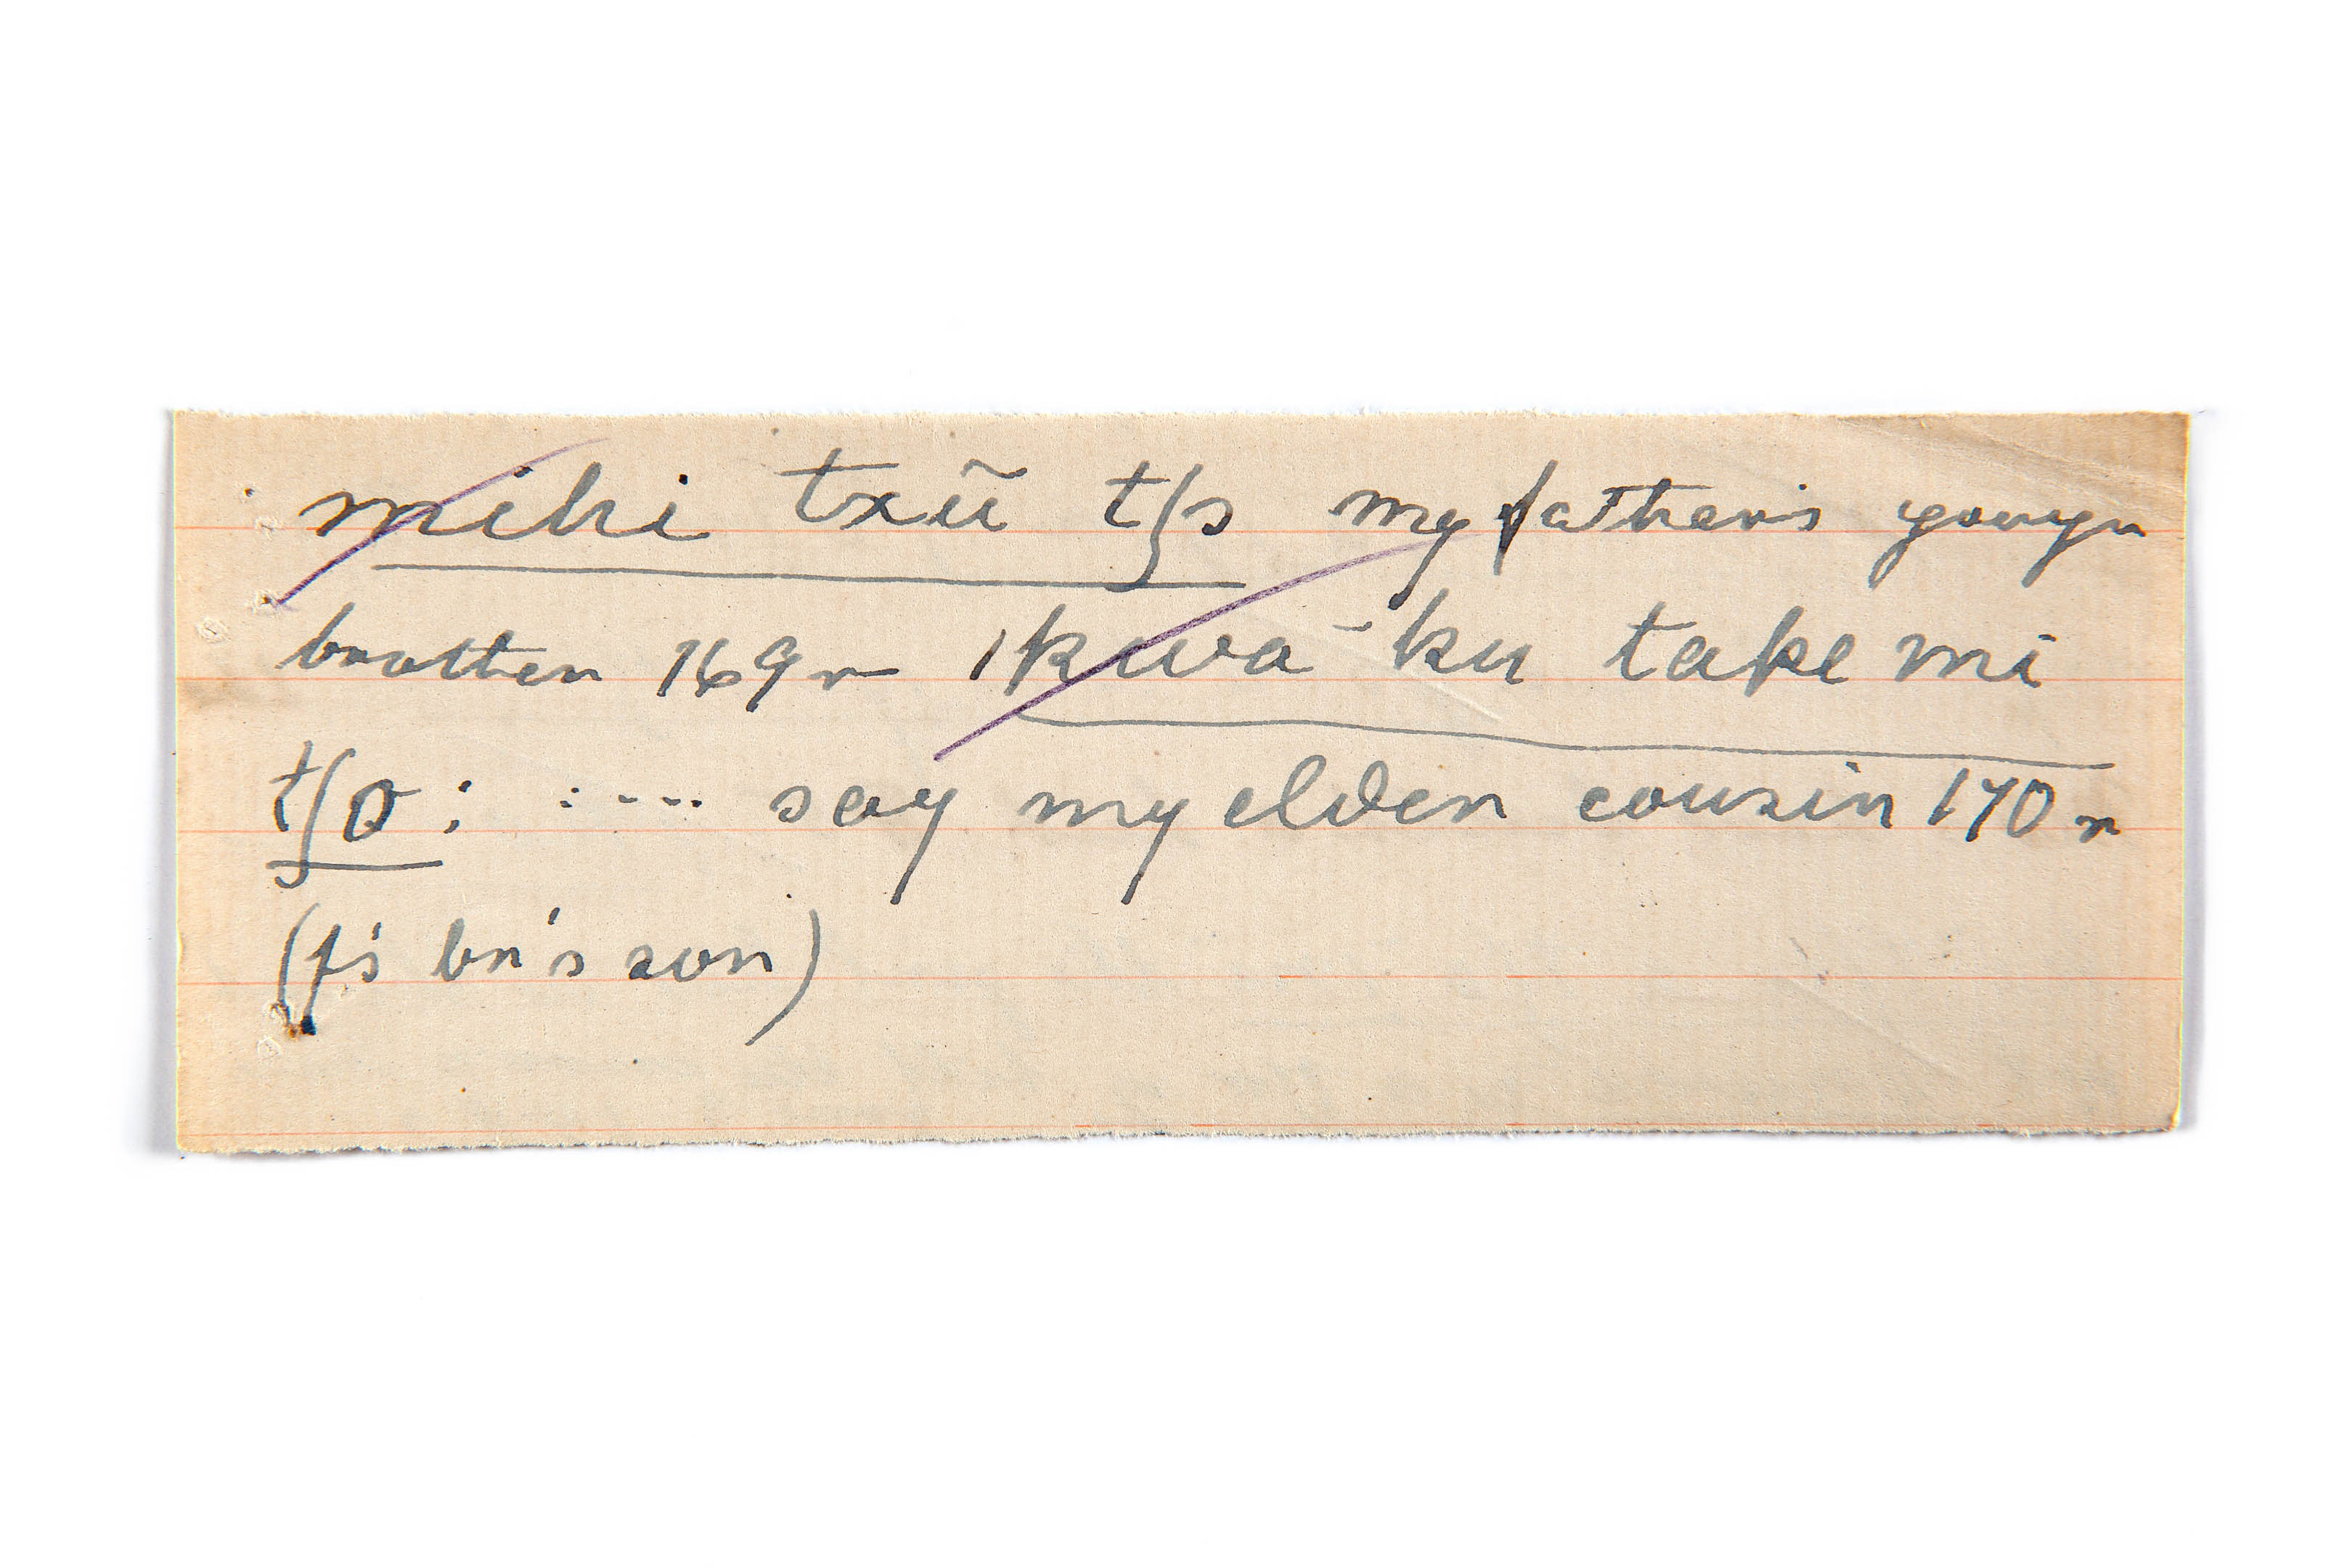 mihi txũ tʃs my father's youngr
brother 169 r ikwa-ku take mi
tʃo : : --- say my elder cousin 170 r
(f's br's son)